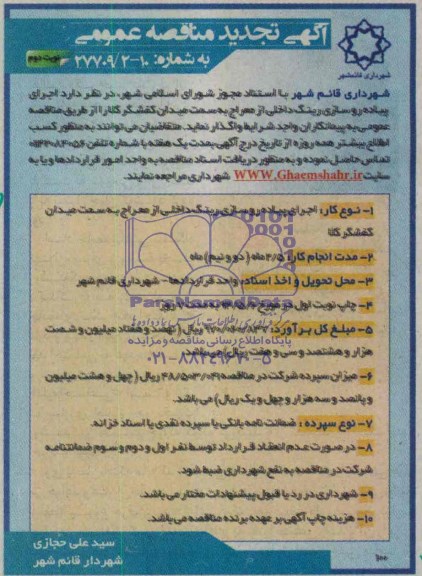 آگهی تجدید مناقصه عمومی
به شماره: ۱۰-۲۷۷۰۹/۲
نوبت دوم
شهرداری قائمشهر
شهرداری قائم شهر با استناد مجوز شورای اسلامی شهر، در نظر دارد اجرای
پیاده روسازی رینگ داخلی از معراج به سمت میدان کفشگر کلا را از طریق مناقصه
عمومی به پیمانکاران واجد شرایط واگذار نماید. متقاضیان می توانند به منظور کسب
اطلاع بیشتر همه روزه از تاریخ درج آگهی بمدت یک هفته با شماره تلفن
تماس حاصل نموده و به منظور دریافت اسناد مناقصه به واحد امور قراردادها و یا به
سایت WWW.Ghaemshahr.ir شهرداری مراجعه نمایند.
۱- نوع کار: اجرای پیاده روسازی رینگ داخلی از معراج به سمت میدان
کفشگر کلا
۲- مدت انجام کار: ۲/۵ ماه (دو و نیم) ماه
۳- محل تحویل و اخذ اسناد: واحد قراردادها - شهرداری قائم شهر
۴- چاپ نوبت اول در مورخ
۵- مبلغ کل برآورد: ریال (نهصد و هفتاد میلیون و شصت
هزار و هشتصد و سی و هفت ریال) می باشد.
پایگاه اطلاع رسانی مناقصه و مزایده
۰۲۱-۸۸۳۴۹۶۷۰-۵
۶- میزان سپرده شرکت در مناقصه ۴۸/۵۰۳/۰۴۱ ریال (چهل و هشت میلیون
و پانصد و سه هزار و چهل و یک ریال) می باشد.
۷- نوع سپرده: ضمانت نامه بانکی یا سپرده نقدی یا اسناد خزانه.
۸- در صورت عدم انعقاد قرارداد توسط نفر اول و دوم و سوم ضمانتنامه
شرکت در مناقصه به نفع شهرداری ضبط شود.
۹- شهرداری در رد یا قبول پیشنهادات مختار می باشد.
۱۰- هزینه چاپ آگهی بر عهده برنده مناقصه می باشد.
سید علی حجازی
شهردار قائم شهر
۱۰۰